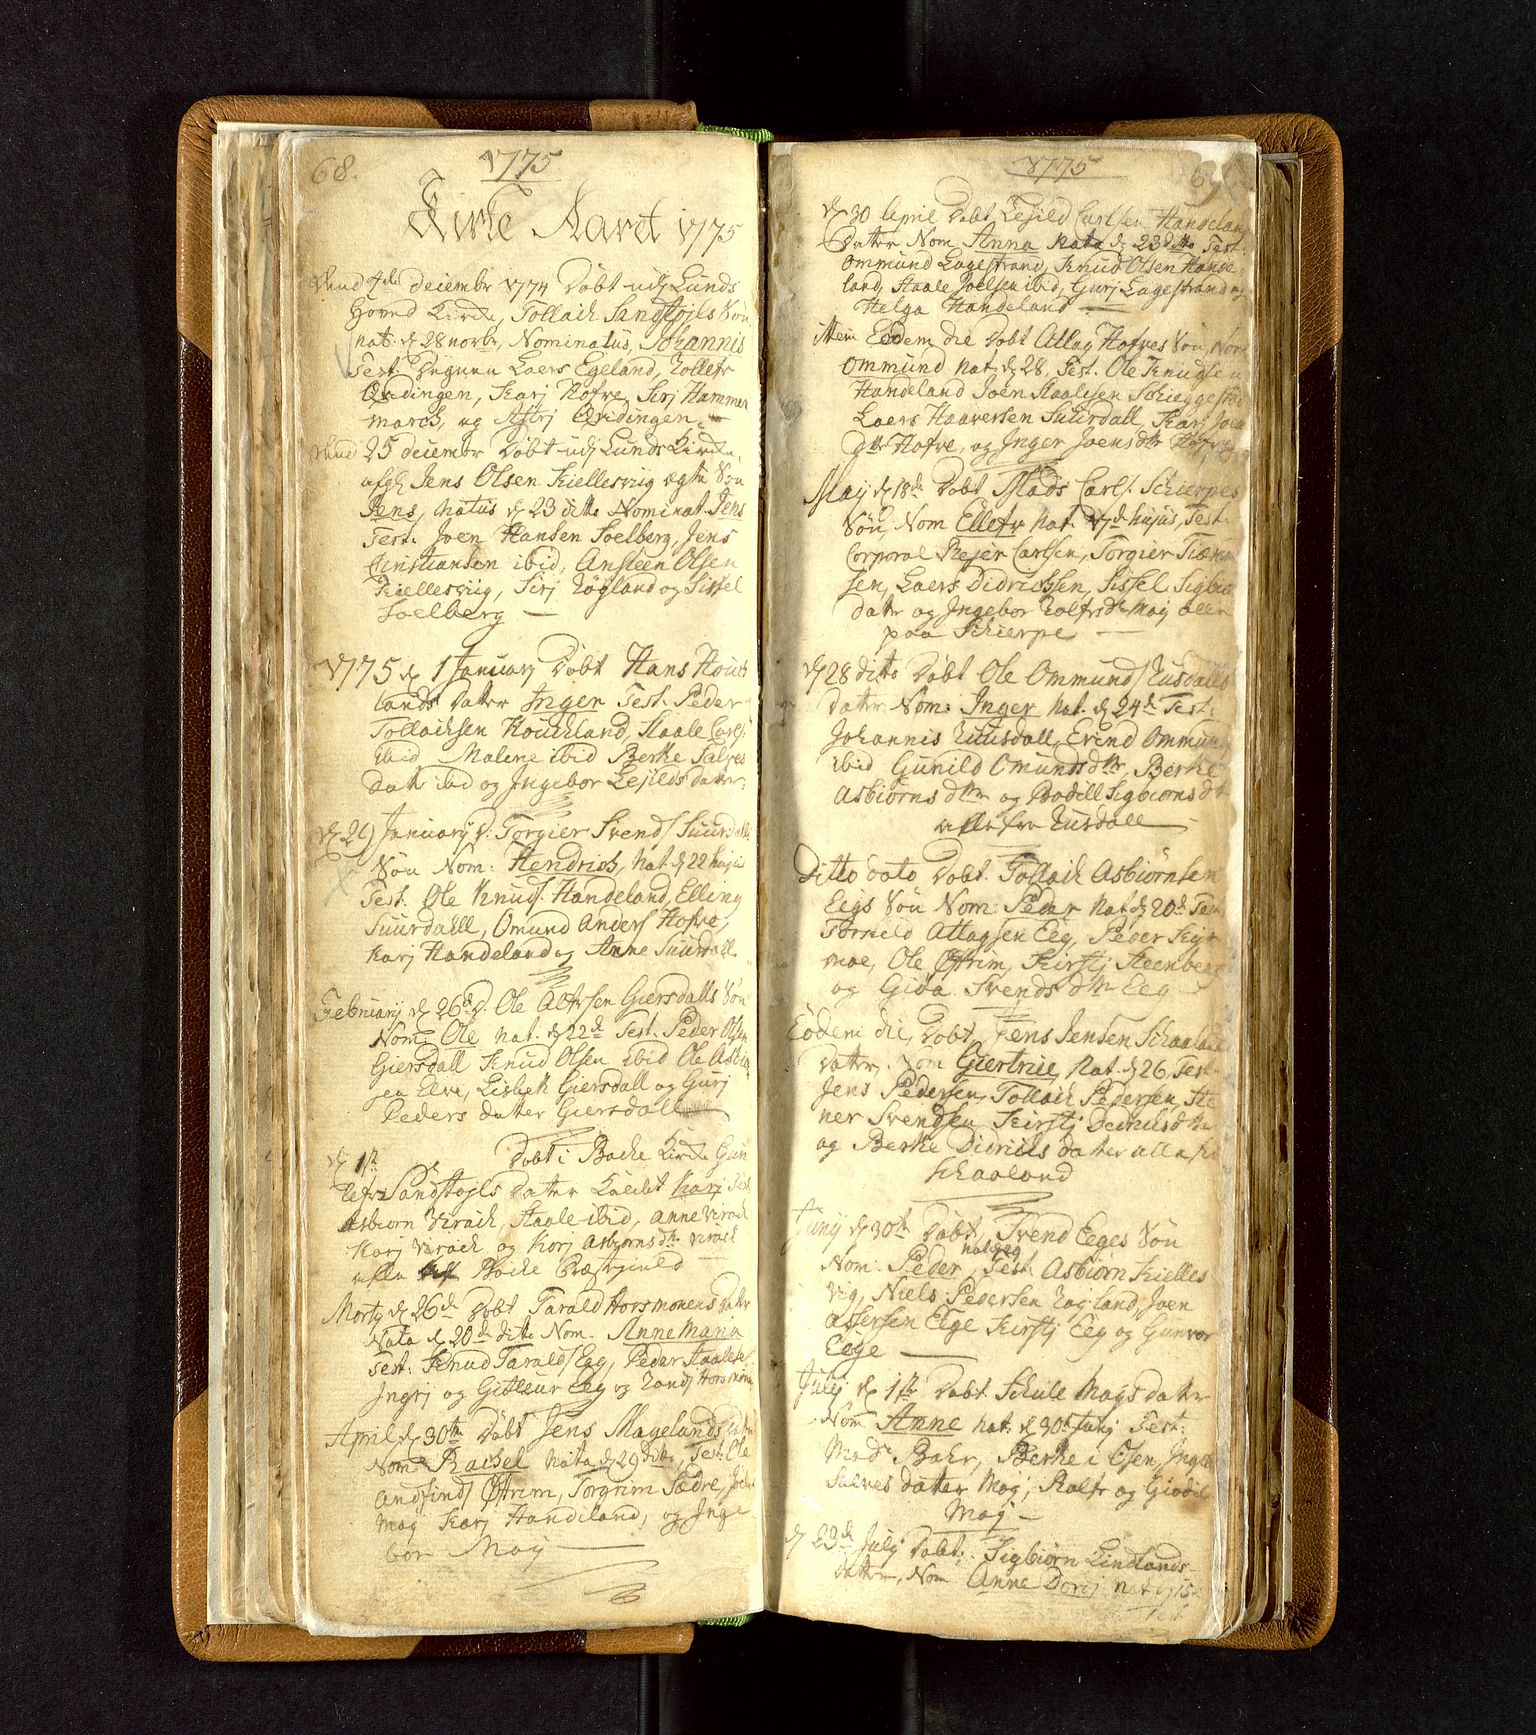 68.
1775
Kirke Aaret 1775
4de decembr 1774 Døbt udj Lunds
Hoved Kirke, Tollach Sandstøjls Søn
nat. d 28 novbr, Nominatus, Johannis
Test. Laers Egeland,
Qvidingen, Karj Hofve, Sirj Hammer
march, og Astrj Qvidingen.
25 decembr Døbt udj Lunds Kirke,
afg: Jens Olsen Kiellesviig ægte Søn
Jens, Natus d 23 ditto Nominat. Jens
Test. Joen Hansen Soelberg, Jens
Christiansen ibid, Ansteen Olsen
Kiellesviig, Sirj Røgland og Sissel
Soelberg
1775 d 1 January Døbt Hans Houch
lands Datter Inger Test. Peder
Tollachsen Houchland, Staale Carls:
ibid Malene ibid Berthe Salves
Datr ibd og Ingebor Lejelds datter.
d 29 January D. Torgier Svends Suurdalls
Søn Nom: Hendrich, Nat. d 22 hujus
Test. Ole Knuds. Handeland, Elling
Suurdall, Omund Anders Hofve,
Karj Handeland og Anne Suurdall
February d 26de D. Ole Giersdalls Søn
Nom: Ole nat. d 22de Test. Peder Olsen
Giersdall Knud Olsen ibid Ole
Elve, Lisbeth Giersdall og Gurj
Peders datter Giersdall
d 1ste Døbt i Bache Kirke Gun
Sandstøjls Datter Kaldet Karj Test.
Asbiorn Verach, Staale ibid, Anne Verach
Karj Verach og Karj Asbjornsdtr Verach
alle Bache Præstegield
Morty d 26de Døbt Tarald Horsmonens Datter
Nata d 20de ditto Nom. Anne Maria
Test: Knud Taralds Egg, Peder Staalese
Ingrj og Gitleur Eeg og Horsmone
April d 30te Døbt Jens Magelands datter
Nom: Rachel nata d 29 ditto, Test: Ole
Andfinds Østrim, Torgrim Sædre,
Mog Karj Handeland, og Inge
bor Moy
1775
69
d 30 April Døbt Lejeld Carlsen Handelands
Datter Nom. Anna Nata d 23 ditto Test.
Ommund Lagestrand, Knud Olsen Hande
land, Staale Joelsen ibid, Gurj Lagestrand og
Helga Handeland
item Eodem die Døbt Atlag Hofves Søn, Nom
Ommund Nat. d 28. Test. Ole Knudsen
Handeland Joen Staalesen Schieggestad
Laers Haaversen Suurdall, Karj Joens
dtr Hofve, og Inger Joensdtr Hofve
May d 18de Døbt Mads Carls. Schierpes
Søn, Nom Ellefr Nat. 17d hujus, Test.
Corporal Rejer Carlsen, Torgier
sen, Laers Didrichsen, Sissel Sigbiors
datr og Ingebor Rolfs dtr Moy alle
paa Schierpe
d 28 ditto Døbt Ole Ommunds Rusdalls
Datter Nom: Inger nat. d 24de Test:
Johannis Ruusdall, Evend Ommunds
ibid Gunild Omunds dtr, Berthe
Asbiorns dtr og Bodell Sigbiorns dtr
alle fra Rusdall
Ditto dato Døbt Tollach Asbiørnsen
Eegs Søn Nom: Peder Nat d 20de Test.
Torkield Atlagsen Eeg, Peder
moe, Ole Østrim, Kirstj Steenberg
og Giva Svends dtr Eeg
Eodem die, Døbt, Jens Jensen Schaalands
Datter Nom Giertrue, Nat. d 26 Test.
Jens Pedersen, Tollach Pedersen, Ste
ner Svendsen Kirstj Didrichs dtr
og Berthe Didrichs datter alle fra
Schaaland
Junij d 30te Døbt Svend Eeges Søn
Nom: Peder, Test. Asbiørn Kielles
vig, Niels Pedersen Rogland, Joen
Assersen Eege Kirstj Eeg og Gunvor
Eege
July d 1ste Døbt Schule Mogs datter
Nom Anne nat. d 30te July Test:
Mad: Bahr, Berthe i Osen, Ingeb:
Salves datter Moy, Rolfr og Giødel
Moy
d 23de July Døbt: Sigbiørn Lindlands
Datter, Nom Anne Dorej nat d 15